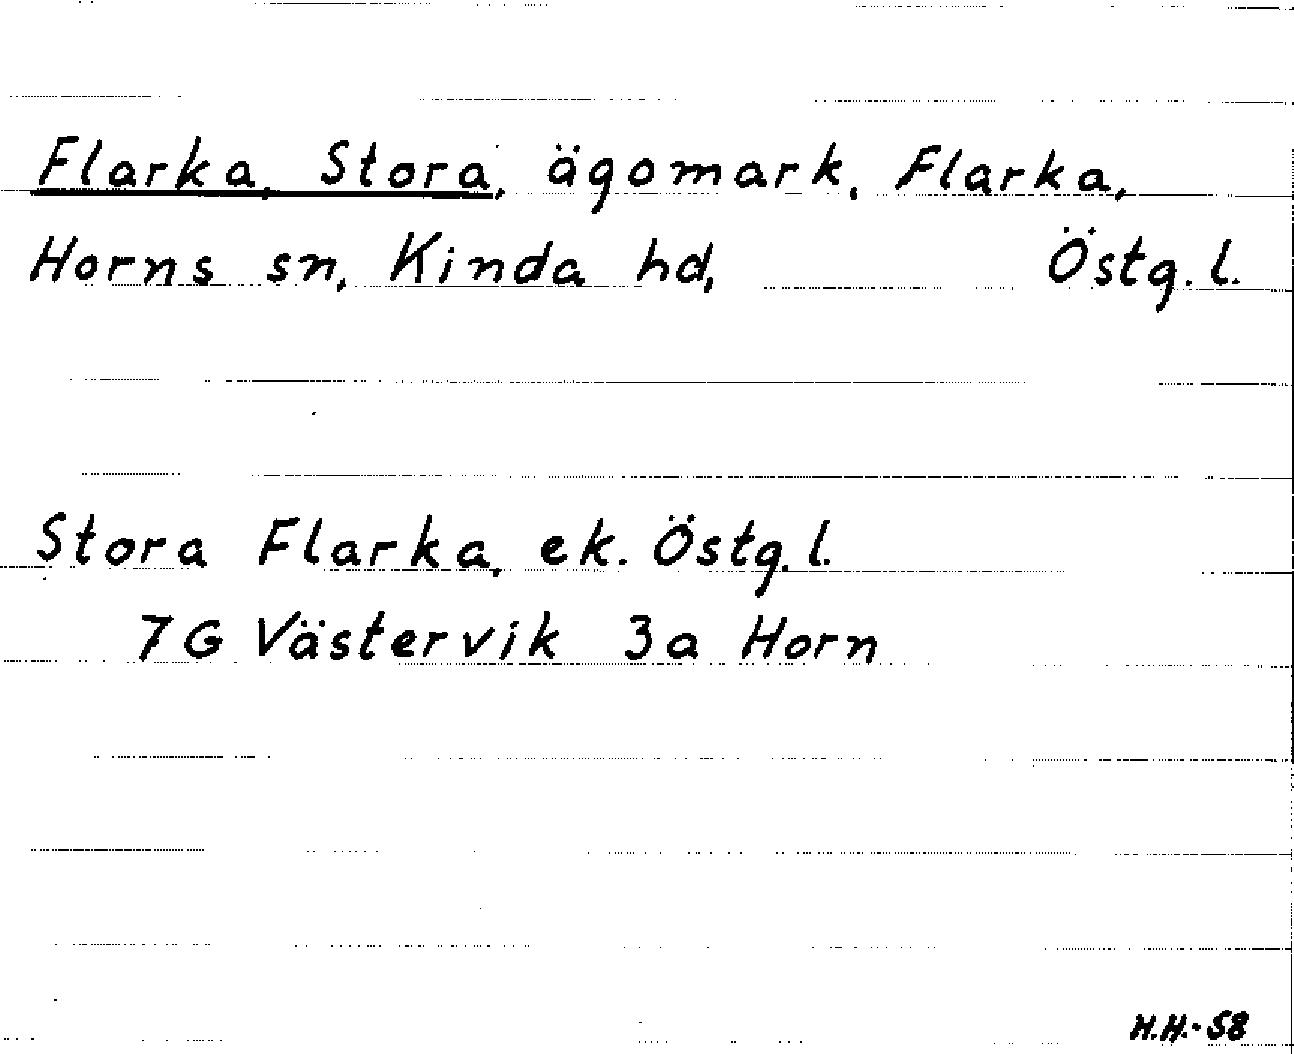 Flarka, Stora, ägomark, Flarka,
Horns sn, Kinda hd, Östg. l.
Stora Flarka, ek. Östg. l.
7G Västervik 3a Horn
H.H.-58